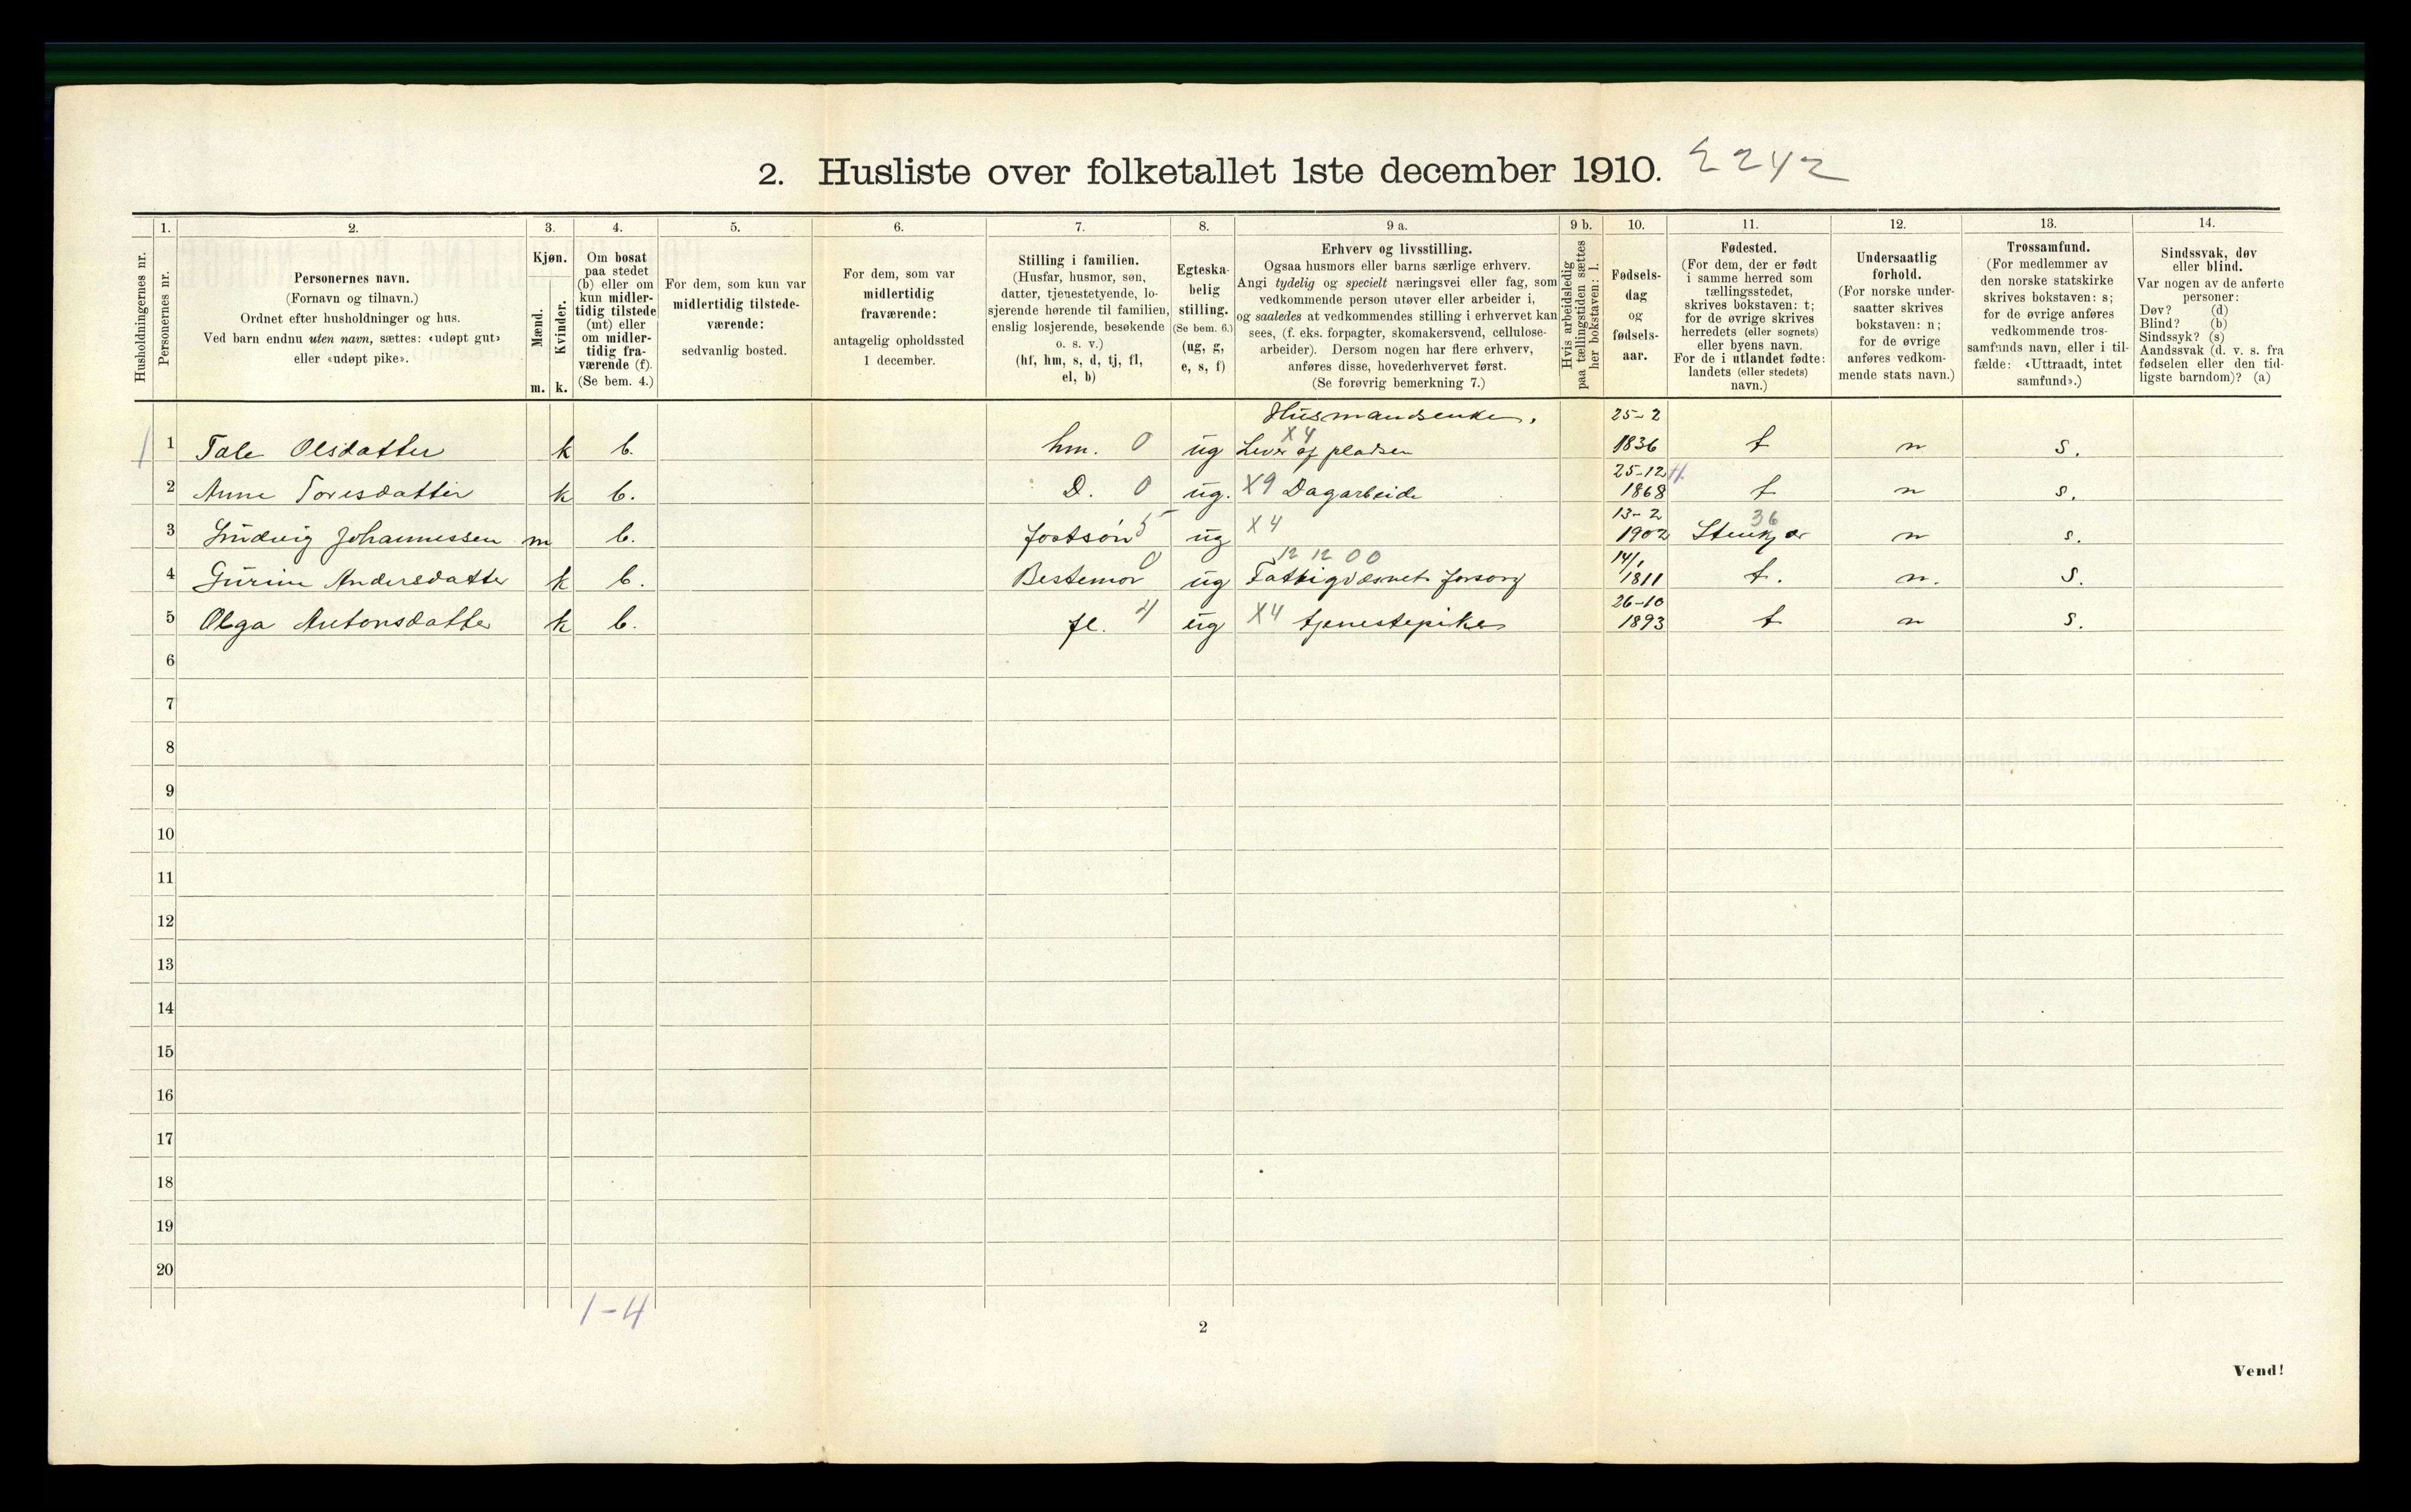 2. Husliste over folketallet 1ste december 1910. 2242
Husholdningernes nr.
1. Personernes nr.
2.
Personernes navn.
(Fornavn og tilnavn.)
Ordnet efter husholdninger og hus.
Ved barn endnu uten navn, sættes: «udøpt gut»
eller «udøpt pike».
3.
Kjøn.
Mænd.
Kvinder.
m. k.
4.
Om bosat
paa stedet
(b) eller om
kun midler-
tidig tilstede
(mt) eller
om midler-
tidig fra-
værende (f).
(Se bem. 4.)
5.
For dem, som kun var
midlertidig tilstede-
værende:
sedvanlig bosted.
6.
For dem, som var
midlertidig
fraværende:
antagelig opholdssted
1 december.
7.
Stilling i familien.
(Husfar, husmor, søn,
datter, tjenestetyende, lo-
sjerende hørende til familien,
enslig losjerende, besøkende
o. s. v.)
(hf, hm, s, d, tj, fl,
el, b)
8.
Egteska-
belig
stilling.
(Se bem. 6.)
(ug, g,
e, s, f)
9 a.
Erhverv og livsstilling.
Ogsaa husmors eller barns særlige erhverv.
Angi tydelig og specielt næringsvei eller fag, som
vedkommende person utøver eller arbeider i,
og saaledes at vedkommendes stilling i erhvervet kan
sees, (f. eks. forpagter, skomakersvend, cellulose-
arbeider). Dersom nogen har flere erhverv,
anføres disse, hovederhvervet først.
(Se forøvrig bemerkning 7.)
9 b.
Hvis arbeidsledig
paa tællingstiden sættes
her bokstaven: l.
10.
Fødsels-
dag
og
fødsels-
aar.
11.
Fødested.
(For dem, der er født
i samme herred som
tællingsstedet,
skrives bokstaven: t;
for de øvrige skrives
herredets (eller sognets)
eller byens navn.
For de i utlandet fødte:
landets (eller stedets)
navn.)
12.
Undersaatlig
forhold.
(For norske under-
saatter skrives
bokstaven: n;
for de øvrige
anføres vedkom-
mende stats navn.)
13.
Trossamfund.
(For medlemmer av
den norske statskirke
skrives bokstaven: s;
for de øvrige anføres
vedkommende tros-
samfunds navn, eller i til-
fælde: «Uttraadt, intet
samfund».)
14.
Sindssvak, døv
eller blind.
Var nogen av de anførte
personer:
Døv? (d)
Blind? (b)
Sindssyk? (s)
Aandssvak (d. v. s. fra
fødselen eller den tid-
ligste barndom)? (a)
Husmandsenke. 25-2
1 1 Tale Olsdatter k b. hm. 0 ug X4 Lever af pladsen 1836 t n s.
25-12
2 Anne Toresdatter k b. D. 0 ug. X9 Dagarbeide 1868 t n s.
13-2 36
3 Ludvig Johannessen m b. Fostsøn 5 ug X4 1902 Stenkjær n s.
12 12 00 14/1
4 Gurine Andersdatter k b. Bestemor 0 ug Fattigvæsnets forsorg 1811 t. n. s.
26-10
5 Olga Antonsdatter k b. fl. 4 ug X4 tjenestepike 1893 t n s.
6
7
8
9
10
11
12
13
14
15
16
17
18
19
20
1-4
2
Vend!